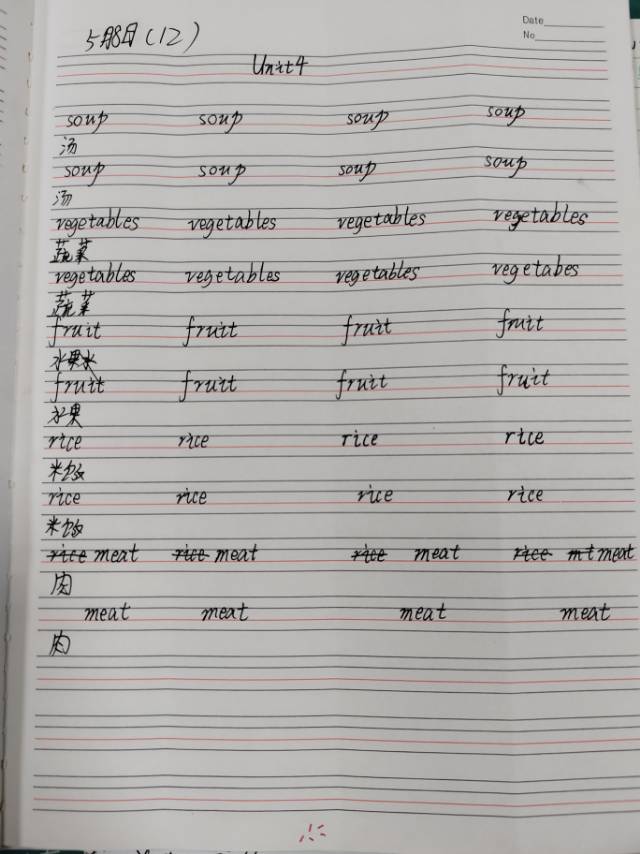 Date
No
5月8日(12)
Unit4
soup soup soup soup
汤
soup soup soup soup
汤
vegetables vegetables vegetables vegetables
蔬菜
vegetables vegetables vegetables vegetabes
蔬菜
fruit fruit fruit fruit
水果水
fruit fruit fruit fruit
水果
rice rice rice rice
米饭
rice rice rice rice
米饭
rice meat rice meat rice meat rice mt meat
肉
meat meat meat meat
肉